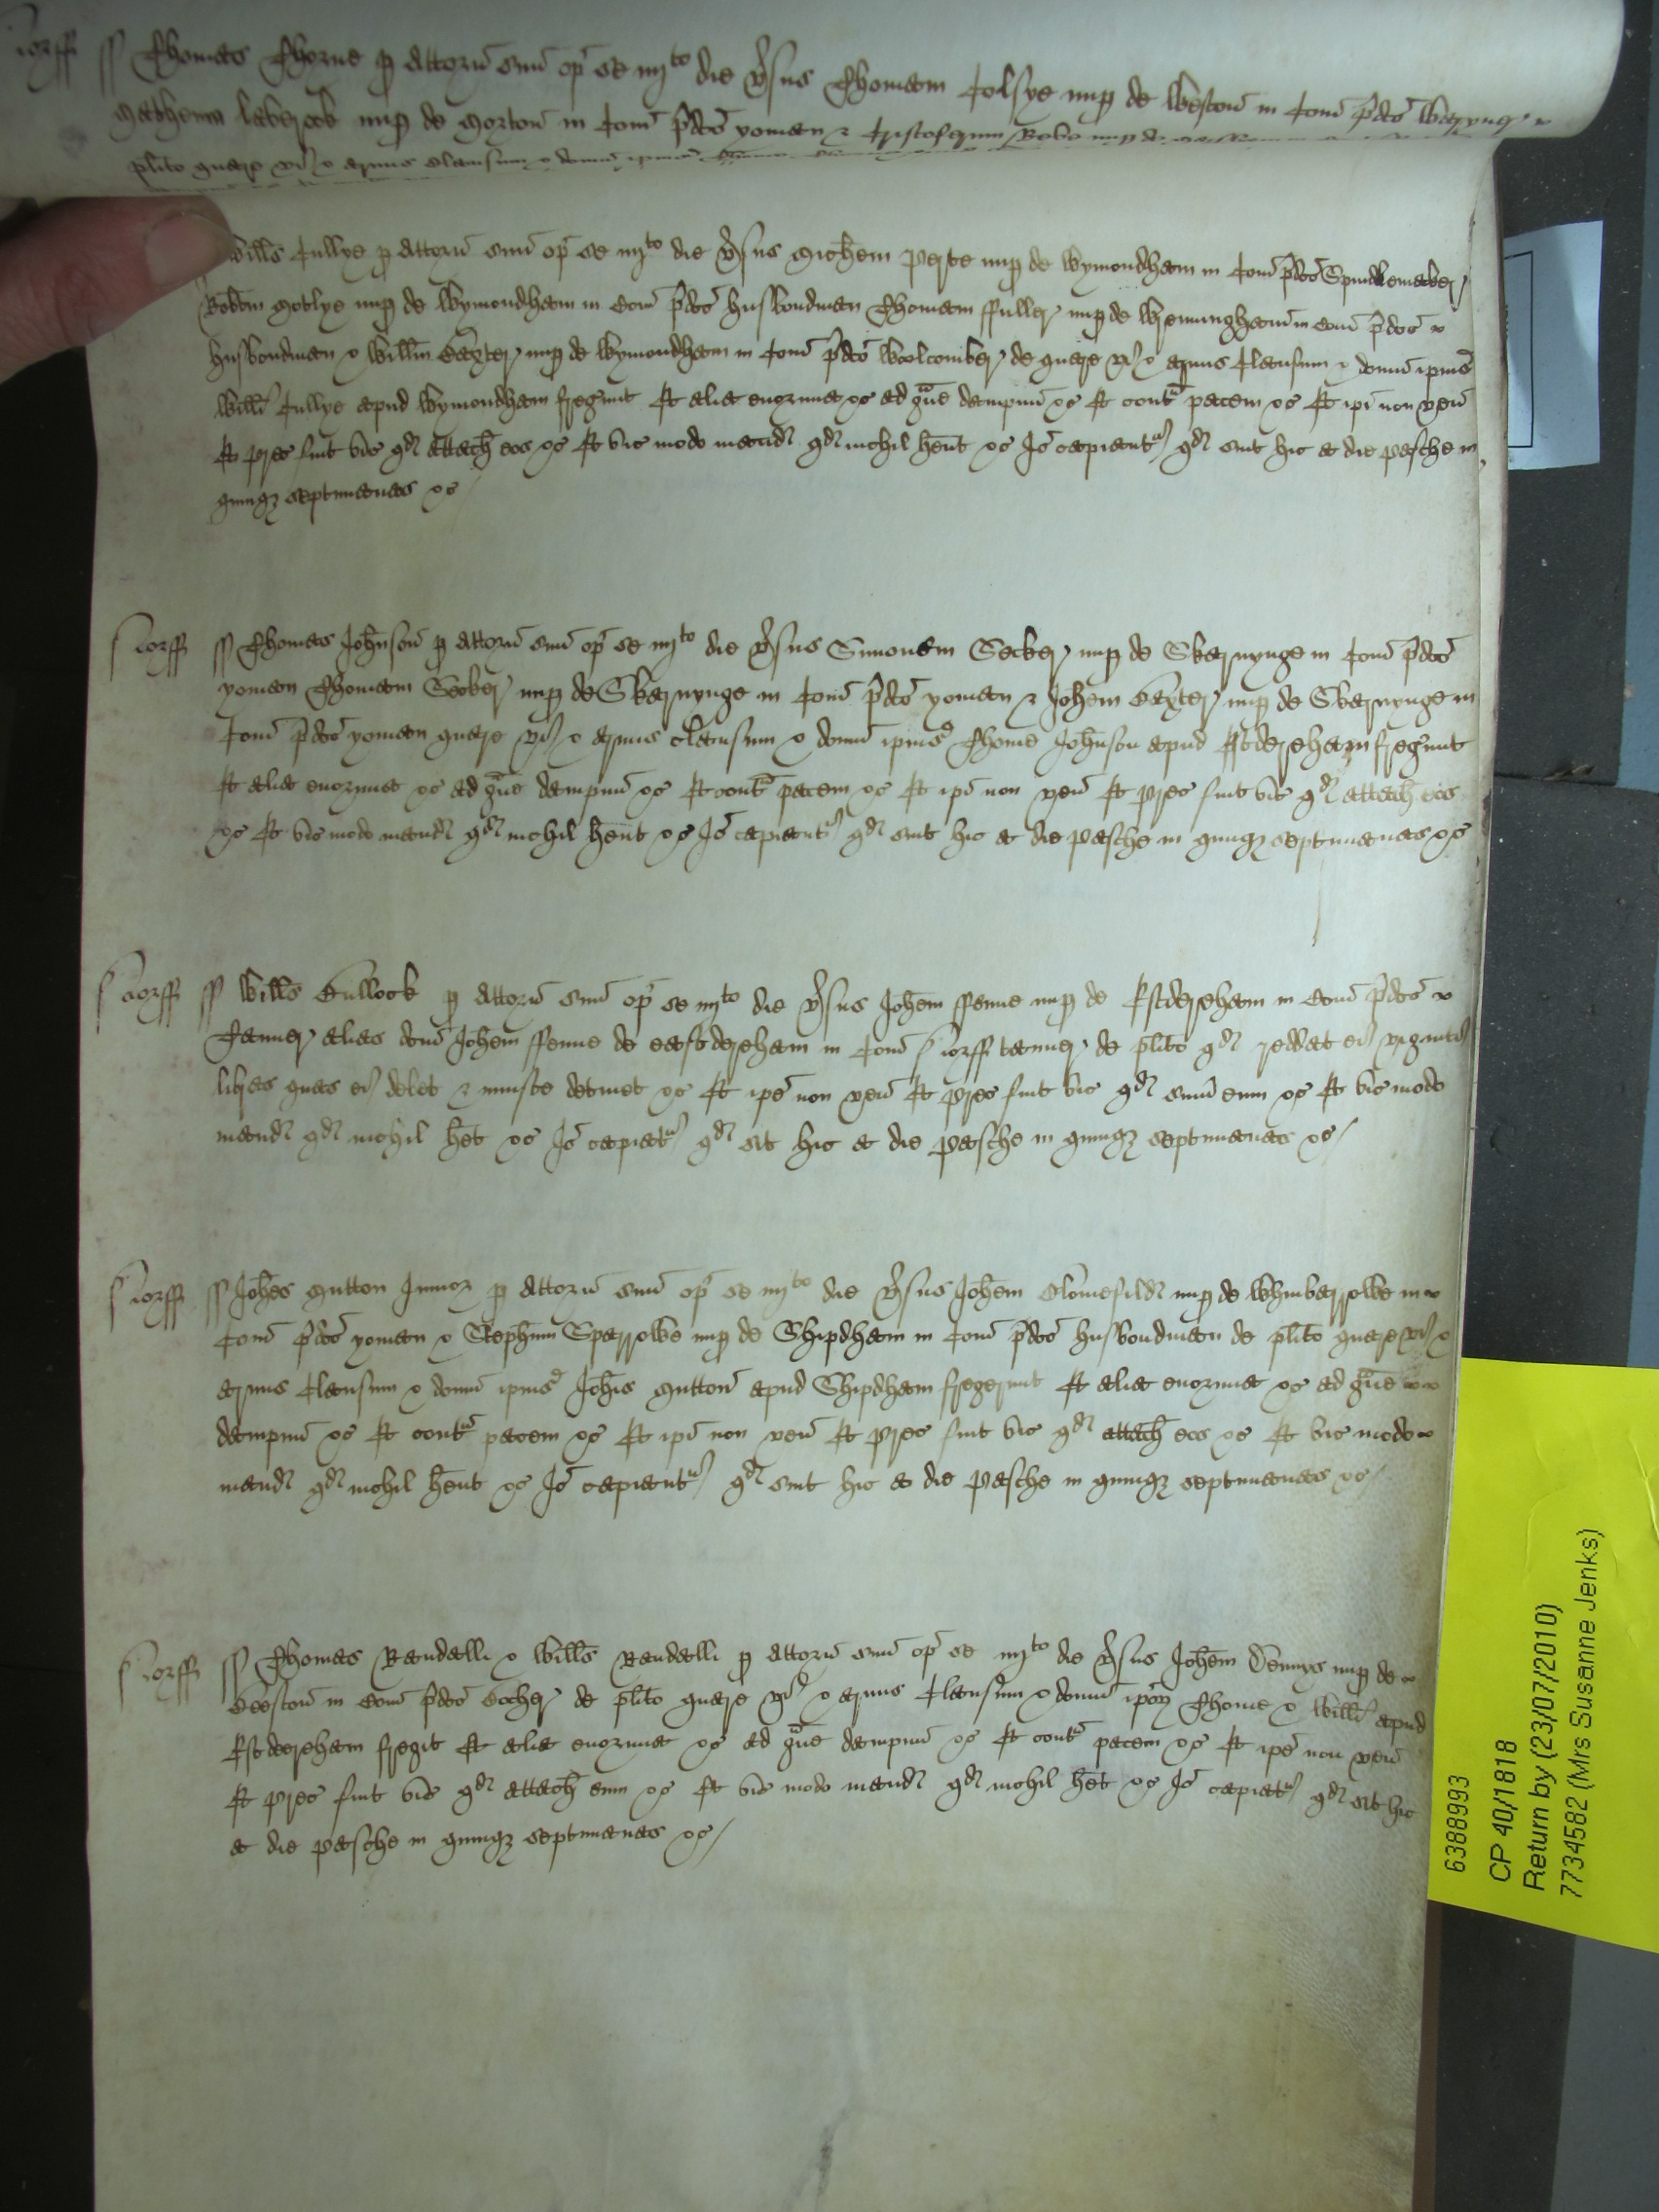 Norff ss Thomas Thorne p attorn suu op se iiijto die vsus Thomam Colsye nup de Weston in Com pdco
Matheum laverock nup de Morton in Com pdco yoman & Cristoferum nup de
plito quare vi & armis clausum & domu ipius
Wills Tullye p attorn suu op se iiijto die vsus Michem perte nup de Wymondham in Com pdco
Robtm Motlye nup de Wymondham in Com pdco husbondman Thomam ffuller nup de in Com pdco
husbondman & Willm Baxter nup de Wymondham in Com pdco Woolcomber de quare vi & armis Clausum & domu ipius
Willi Tullye apud Wymondham fregunt Et alia enormia &c ad gue dampnu &c Et cont pacem &c Et ipi non ven
Et prec fuit vic qd attach eos &c Et vic modo mand qd nichil hent &c Io capiant qd sint hic a die pasche in
quinq septimanas &c
Norff ss Thomas Johnson p attorn suu op se iiijto die vsus Simonem Secker nup de Skarnynge in Com pdco
yoman Thomam Secker nup de Skarnynge in Com pdco yoman & Johem Baxter nup de Skarnynge in
Com pdco yoman quare vi & armis clausum & domu ipius Thome Johnson apud Estdereham fregunt
Et alia enormia &c ad gue dampnu &c Et cont pacem &c Et ipi non ven Et prec fuit vic qd attach eos
&c Et vic modo mand qd nichil hent &c Io capiant qd sint hic a die pasche in quinq septimanas &c
Norff ss Wills Bullock p attorn suu op se iiijto die vsus Johem ffenne nup de Estdereham in Com pdco
Tanner alias dcm Johem ffenne de eastdereham in Com Norff tanner de plito qd reddat ei viginti
libras quas ei debet & iniuste detinet &c Et ipe non ven Et prec fuit vic qd sum eum &c Et vic modo
mand qd nichil het &c Io capiat qd sit hic a die pasche in quinq septimanas &c
Norff ss Johes Mutton Junior p attorn suu op se iiijto die vsus Johem Blomefild nup de Whinbarrowe in
Com pdco yoman & Stephum Sparrowe nup de Shipdham in Com pdco husbondman de plito quare vi &
armis Clausum & domu ipius Johis Mutton apud Shipdham fregerunt Et alia enormia &c ad gue
dampnu &c Et cont pacem &c Et ipi non ven Et prec fuit vic qd attach eos &c Et vic modo
mand qd nichil hent &c Io capiant qd sint hic a die pasche in quinq septimanas &c
Norff ss Thomas Randalli & Wills Randalli p attorn suu op se iiijto die vsus Johem Dennys nup de
Beeston in Com pdco de plito quare vi & armis Clausum & domu ipor Thome & Willi apud
Estdereham fregit Et alia enormia &c ad gue dampnu &c Et cont pacem &c Et ipe non ven
Et prec fuit vic qd attach eum &c Et vic modo mand qd nichil het &c Io capiat qd sit hic
a die pasche in quinq septimanas &c
6388993
CP 40/1818
Return by (23/07/2010)
7734582 (Mrs Susanne Jenks)